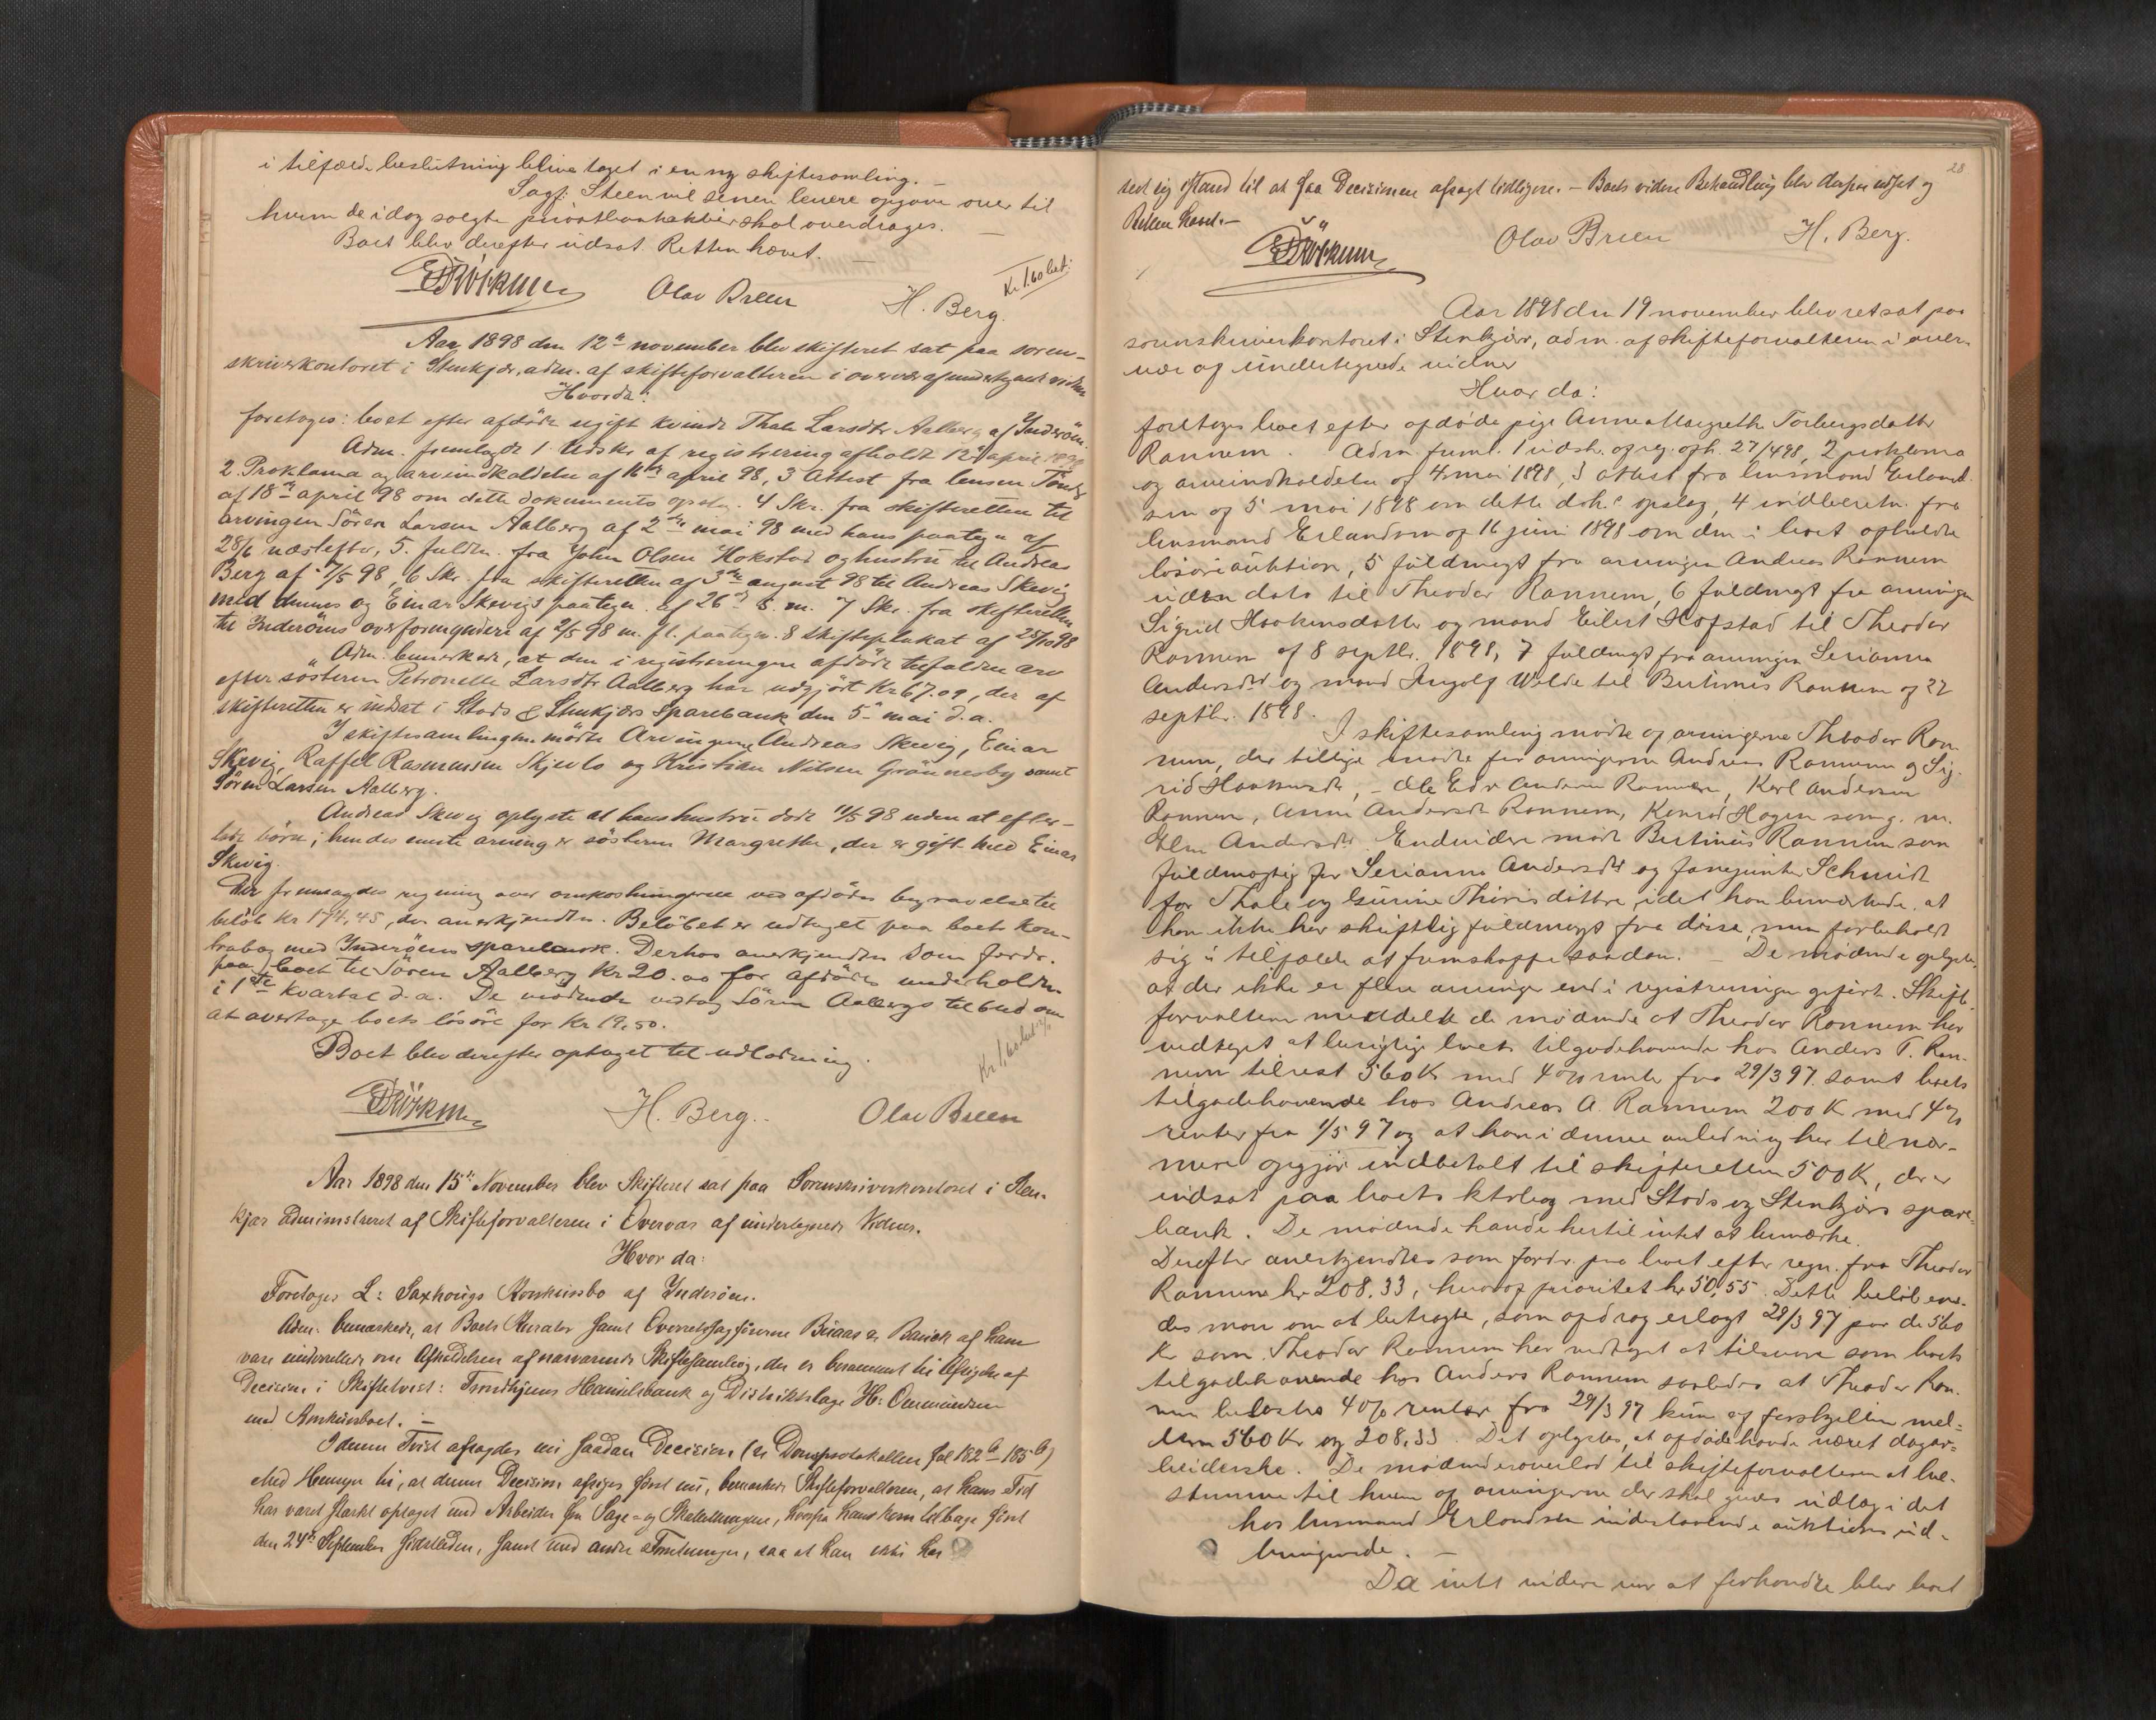 i tilfælde beslutning blive taget i en ny skiftesamling. –
Sagf. Steen vil senere levere opgave over til
hvem de idag solgte privatbankaktier skal overdrages. –
Boet blev derefter udsat. Retten hævet. –
Olav Breen
H. Berg.
Kr 1.60 bet.
Aar 1898 den 12te november blev skifteret sat paa soren-
skriverkontoret i Stenkjær, adm. af skifteforvalteren i overvær af undertegnede vidner
Hvorda:
foretoges: boet efter afdøde ugift kvinde Thale Larsdtr Aalberg af Inderöen.
Adm. fremlagde 1 Udskr. af registrering afholdt 12te april 1898
2 Proklama og arveindkaldelse af 16de april 98, 3 Attest fra lensm.
af 18de april 98 om dette dokuments opslag. 4 Skr. fra skifteretten til
arvingen Sören Larsen Aalberg af 2den mai 98 med hans paategn. af
28/6 næstefter, 5. fuldm. fra John Olsen Hokstad og hustru til Andreas
Berg af 7/5 98, 6 Skr. fra skifteretten af 3die august 98 til Andreas Skevig
med dennes og Einar Skevigs paategn. af 26de s. m. 7 Skr. fra skifteretten
til Inderöens overformynderi af 2/5 98 m. fl. paategn. 8 skifteplakat af 28/10 98
Adm. bemerkede, at den i registreringen afdöde tilfaldne arv
efter søsteren Petronelle Larsdtr Aalberg har udgjort Kr 67.09, der af
skifteretten er indsat i Stods & Stenkjærs Sparebank den 5te mai d.a.
I skiftesamlingen mødte Arvingerne Andreas Skevig, Einar
Skevig, Raffel Rasmussen Skjevlo og Kristian Nilsen Grønnesby samt
Sören Larsen Aalberg.
Andreas Skevig oplyste at hans hustru döde 11/5 98 uden at efter-
lade börn; hendes eneste arving er søsteren Margrethe, der er gift med Einar
Skevig.
Der fremlagdes regning over omkostningerne ved afdödes begravelse til
beløb Kr 174,45, der anerkjendtes. Belöbet er udtaget paa boets kon-
trabog med Inderöens sparebank. Derhos anerkjendtes som fordr.
paa boet til Sören Aalberg Kr 20.00 for afdödes underholdn.
i 1ste kvartal d.a. De mödende vedtog Sören Aalbergs tilbud om
at overtage boets lösöre for Kr 19,50.
Boet blev derefter optaget til udlodning.
H. Berg.
Olav Breen
Aar 1898 den 15de November blev Skifteret sat paa Sorenskriverkontoret i Sten-
kjær administreret af Skifteforvalteren i Overvær af undertegnede Vidner.
Hvor da:
Foretoges L. Saxhaugs Konkursbo af Inderöen.
Adm. bemærkede, at Boets Kurator samt Overretssagförerne Buaas & af ham
vare underrettede om Afholdelsen af nærværende Skiftesamling, der er berammet til Afsigelse af
Decision i Skiftetvist: Trondhjems Handelsbank og Distriktslæge H. Omundsen
mod Konkursboet. –
I denne Tvist afsagdes en saadan Decision (se Domsprotokollen fol 182b–185b)
Med Hensyn til, at denne Decision afsiges först nu, bemærkede Skifteforvalteren, at hans Tid
har været stærkt optaget med Arbeider fra Sage- og Meddomsagene, hvorfra han kom tilbage först
den 24de September sidstleden, samt med andre Forretninger, saa at han ikke har
28
seet sig istand til at faa Decisionen afsagt tidligere. – Boets videre Behandling blev derpaa udsat og
Retten hævet. –
Olav Breen
H. Berg.
Aar 1898 den 19 november blev ret sat paa
sorenskriverkontoret i Stenkjær, adm. af skifteforvalteren i over-
vær af undertegnede vidner
Hvor da:
foretoges boet efter afdøde pige Anne Margrethe Torbergsdatter
Rannem. Adm. freml. 1 udskr. af reg. afh. 27/4 98, 2 proklama
og arveindkaldelse af 4 mai 1898, 3 attest fra lensmand Erland-
sen af 5 mai 1898 om dette dok.s opslag, 4 indberetn. fra
lensmand Erlandsen af 16 juni 1898 om den i boet afholdte
løsøreauktion, 5 fuldmagt fra arvingen Andreas Rannem
uden dato til Theodor Rannem, 6 fuldmagt fra arvingen
Sigrid Haakensdatter og mand Eilert Hofstad til Theodor
Rannem af 8 septbr. 1898, 7 fuldmagt fra arvingen Serianna
Andersdtr og mand Ingolf Welde til Bertinus Rannem af 22
septbr. 1898.
I skiftesamling mødte af arvingerne Theodor Ran-
nem, der tillige mødte for arvingerne Andreas Rannem og Sig-
rid Haakensdtr, – Ole Edv. Andersen Rannem, Karl Andersen
Rannem, Anne Andersdtr Rannem, Konrad Hagen som g. m.
Elen Andersdtr. Endvidere mødte Bertinus Rannem som
fuldmægtig for Serianna Andersdtr og fanejunker Schmidt
for Thale og Gurine Thorisdøttre, idet han bemærkede, at
han ikke har skriftlig fuldmagt fra disse, men forbeholdt
sig i tilfælde at fremskaffe saadan. – De mødende oplyste,
at der ikke er flere arvinger end i registreringen anført. Skift
forvalteren meddelte de mødende at Theodor Rannem har
vedtaget at berigtige boets tilgodehavende hos Anders T. Ran-
nem tilrest 560 K med 4% rente fra 29/3 97 samt boets
tilgodehavende hos Andreas A. Rannem 200 K med 4%
renter fra 1/5 97 og at han i denne anledning har til nær-
mere opgjør indbetalt til skifteretten 500 K, der er
indsat paa boets ktrbog med Stods og Stenkjærs spare-
bank. De mødende havde hertil intet at bemærke.
Derefter anerkjendtes som fordr. paa boet efter regn. fra Theodor
Rannem kr 208.33, hvoraf prioritet kr 50.55. Dette beløb ene-
des man om at betragte, som afdrag erlagt 29/3 97 paa de 560
Kr som Theodor Rannem har vedtaget at tilsvare som boets
tilgodehavende hos Anders Rannem saaledes at Theodor Ran-
nem belastes 4% renter fra 29/3 97 kun af forskjellen mel-
lem 560 Kr og 208.33. Det oplystes, at afdøde havde været dagar-
beiderske. De mødende overlod til skifteforvalteren at be-
stemme til hvem af arvingerne der skal gives udlæg i det
hos lensmand Erlandsen indestaaende auktions ud-
bringende. –
Da intet videre var at forhandle blev boet